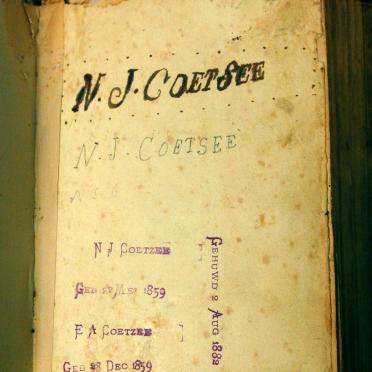 N. J. COETSEE
N. J. COETSEE
N J COETZEE
GEB 27 MEI 1859
E A COETZEE
GEB 28 DEC 1859
GEHUWD 2 AUG 1882